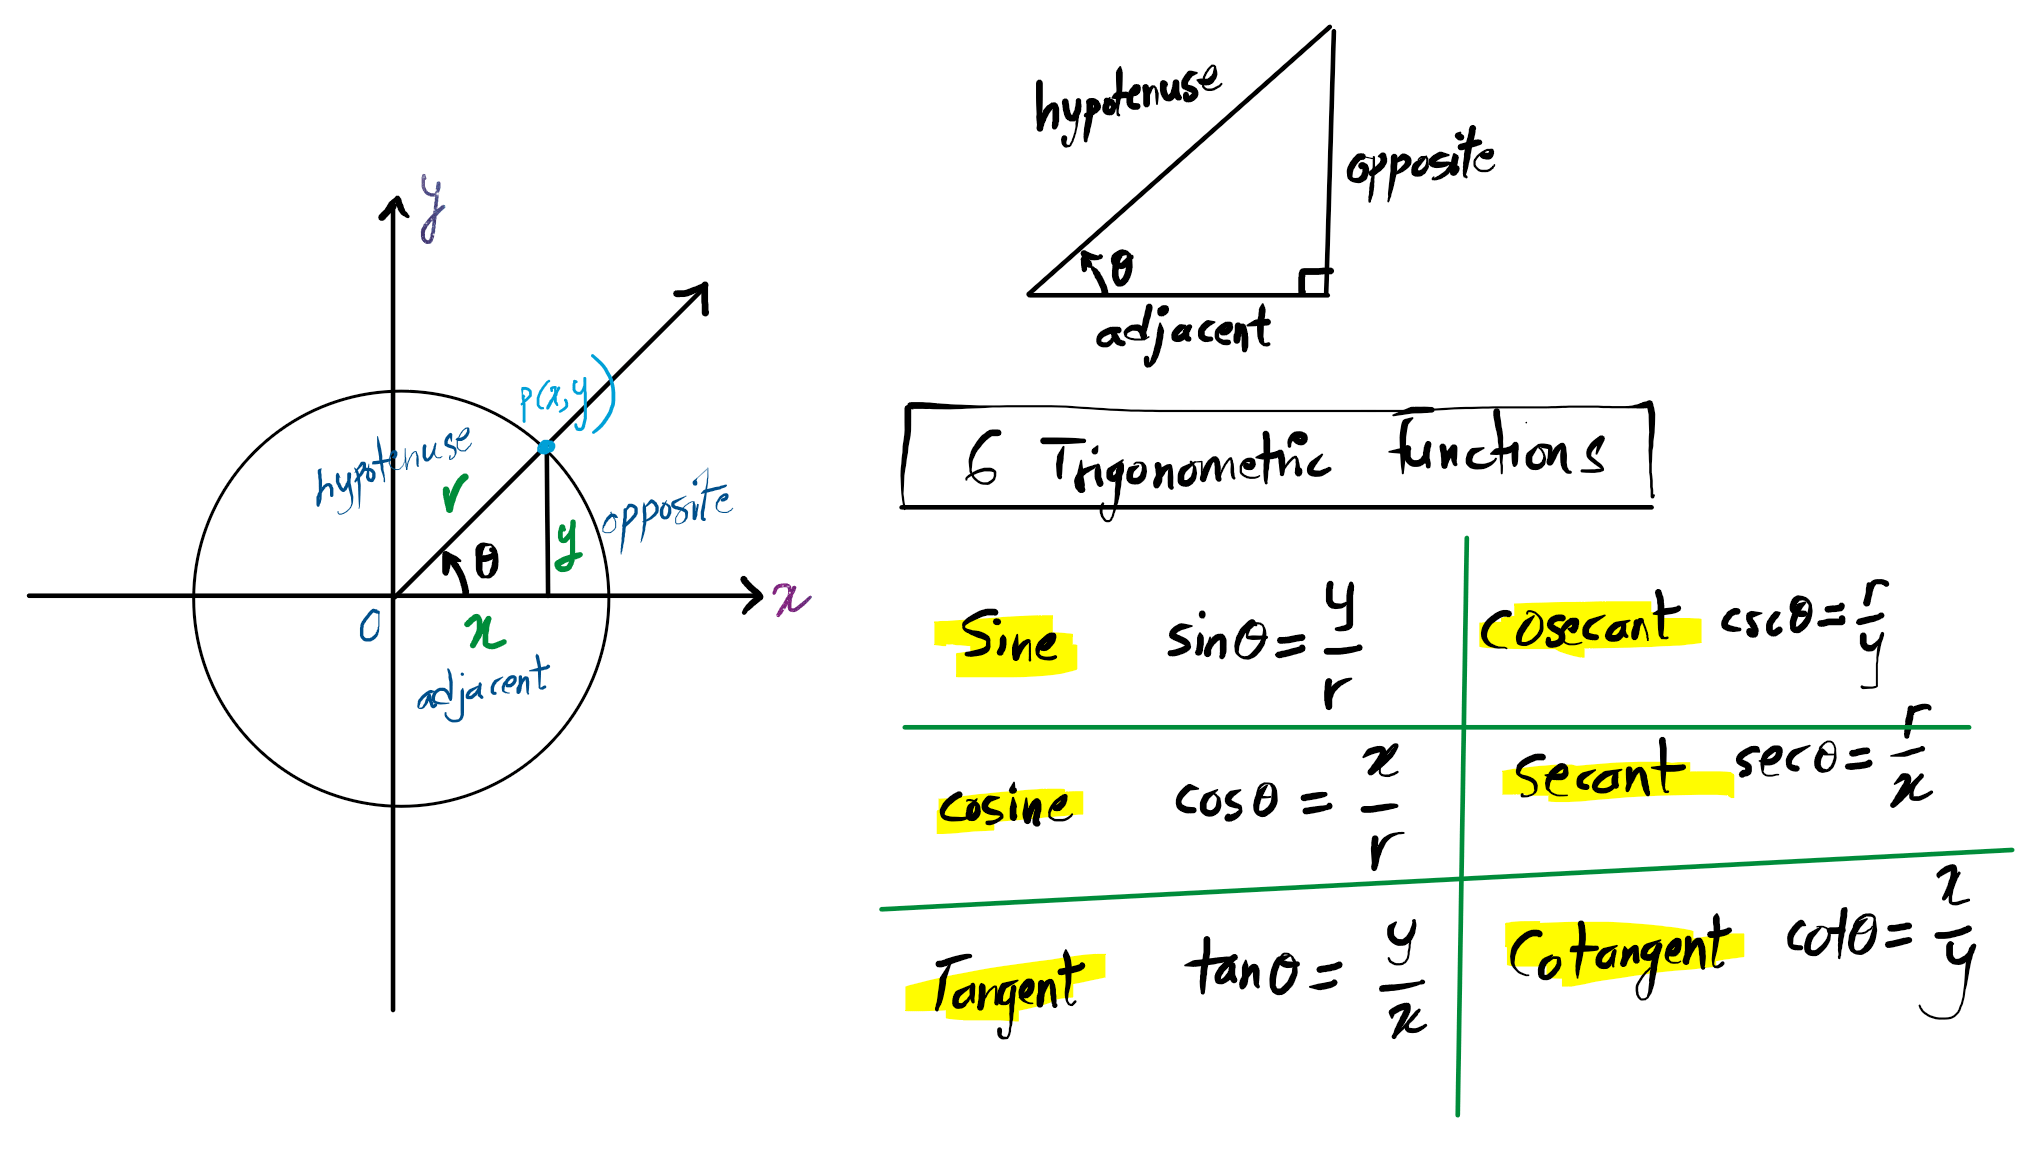 y
P(x,y)
hypotenuse
r
opposite
y
θ
x
O
x
adjacent
hypotenuse
opposite
θ
adjacent
6 Trigonometric functions
Sine sinθ = y/r
Cosecant cscθ = r/y
cosine cosθ = x/r
Secant secθ = r/x
Tangent tanθ = y/x
Cotangent cotθ = x/y